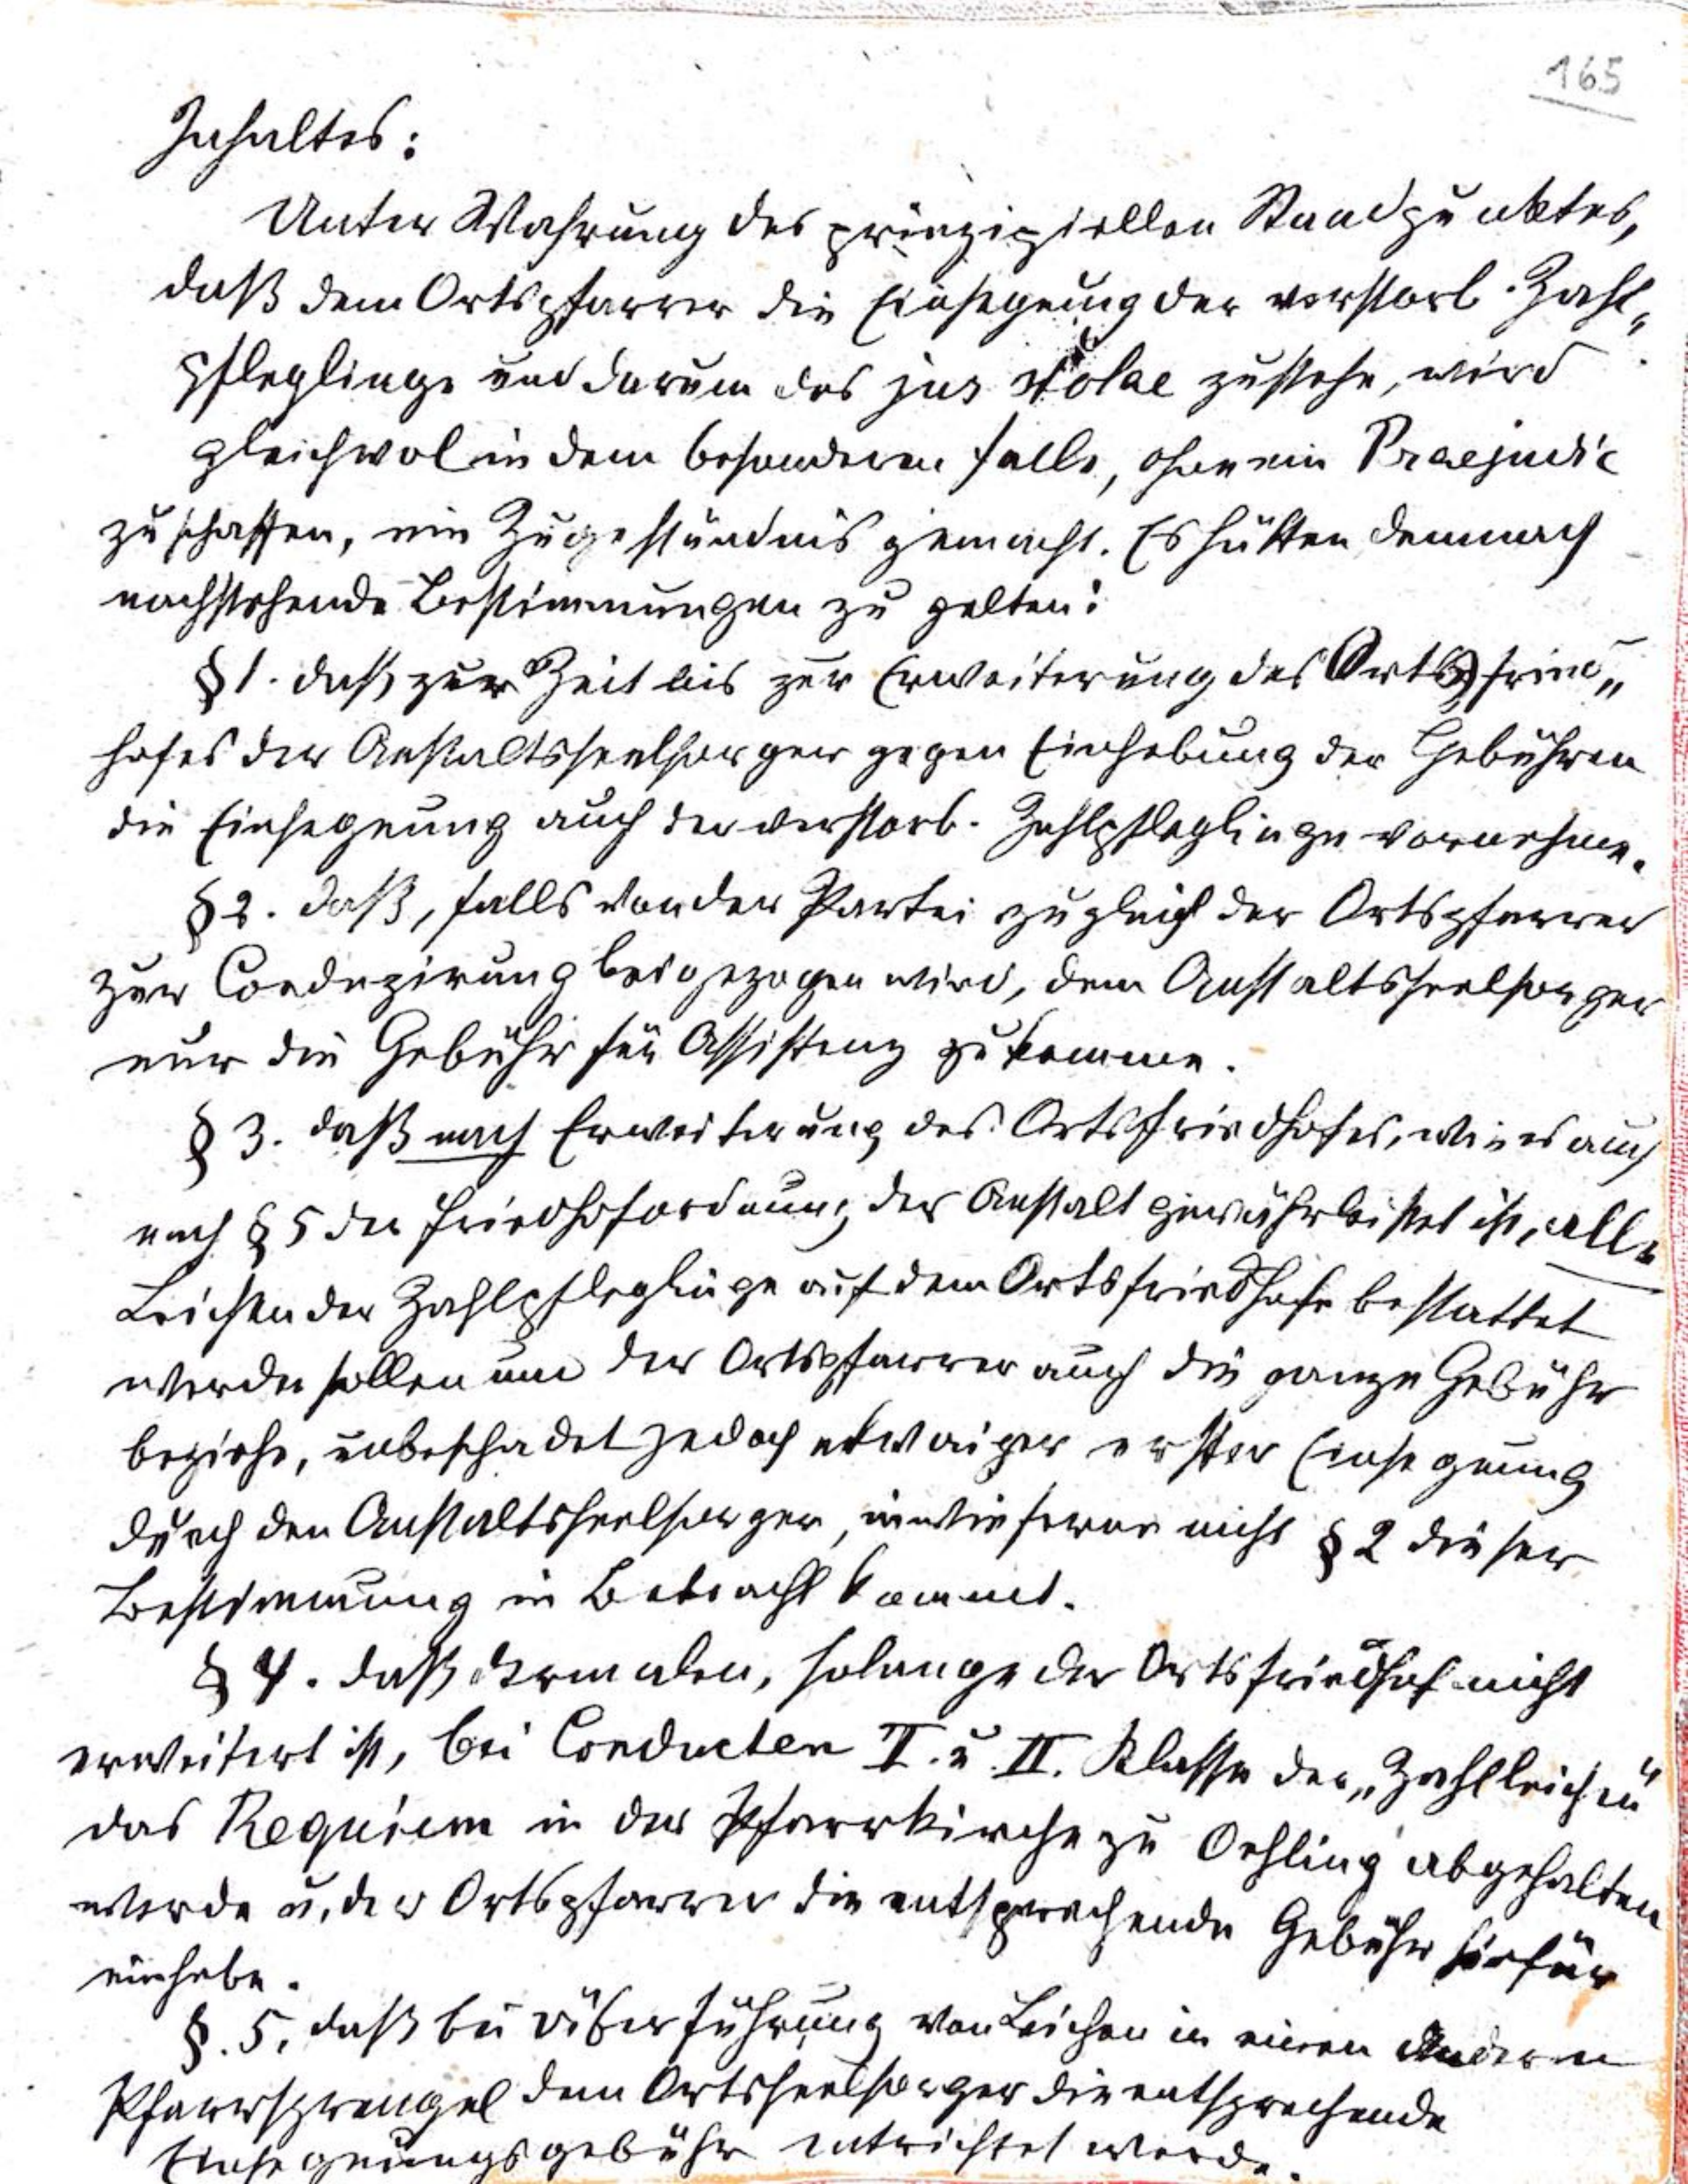 165
Inhaltes:
Unter Wahrung des prinzipiellen Standpunktes,
daß dem Ortspfarrer die Einsegnung der verstorb. Zahl„
pfleglinge und darum das jus stolae zustehe, wird
gleichwol in dem besonderen Falle, ohne ein Praejudic
zu schaffen, ein Zugeständnis gemacht. Es hätten demnach
nachstehende Bestimmungen zu gelten:
§ 1. daß zur Zeit bis zur Erweiterung des Ortsfried„
hofes der Anstaltsseelsorger gegen Einhebung der Gebühren
die Einsegnung auch der verstorb. Zahlpfleglinge vornehme.
§ 2. daß, falls von der Partei zugleich der Ortspfarrer
zur Conduzirung beigezogen wird, dem Anstaltsseelsorger
nur die Gebühr für Assistenz zukomme.
§ 3. daß nach Erweiterung des Ortsfriedhofes, wie es auch
nach § 5 der Friedhofordnung der Anstalt gewährleistet ist, alle
Leichen der Zahlpfleglinge auf dem Ortsfriedhofe bestattet
werden sollen und der Ortspfarrer auch die ganze Gebühr
beziehe, unbeschadet jedoch etwaiger erster Einsegnung
durch den Anstaltsseelsorger, inwieferne nicht § 2 dieser
Bestimmung in Betracht kommt.
§ 4. daß dermalen, solange der Ortsfriedhof nicht
erweitert ist, bei Conducten I. u. II. Klasse der „Zahlleichen"
das Requiem in der Pfarrkirche zu Oehling abgehalten
werde u. der Ortspfarrer die entsprechende Gebühr hiefür
einhebe.
§. 5. daß bei Überführung von Leichen in einen anderen
Pfarrsprengel dem Ortsseelsorger die entsprechende
Einsegnungsgebühr entrichtet werde.